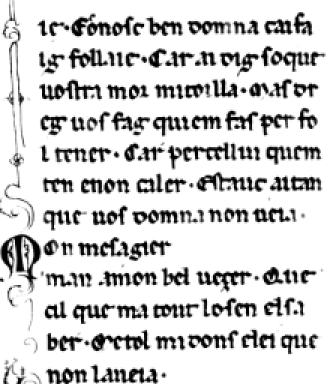 ic· Conosc ben domna caifa
ig follic· Car ai dig so que
uostra mor mi toilla· Mas de
eg uos fag qui em fas per fo
l tener· Car per cellui quem
ten en non caler· Estauc aitan
que uos domna non ueia·
Mon mesagier
man amon bel uezer· Que
cil que ma tout lo sen el sa
ber· Me tol midons e lei que
non laneia·